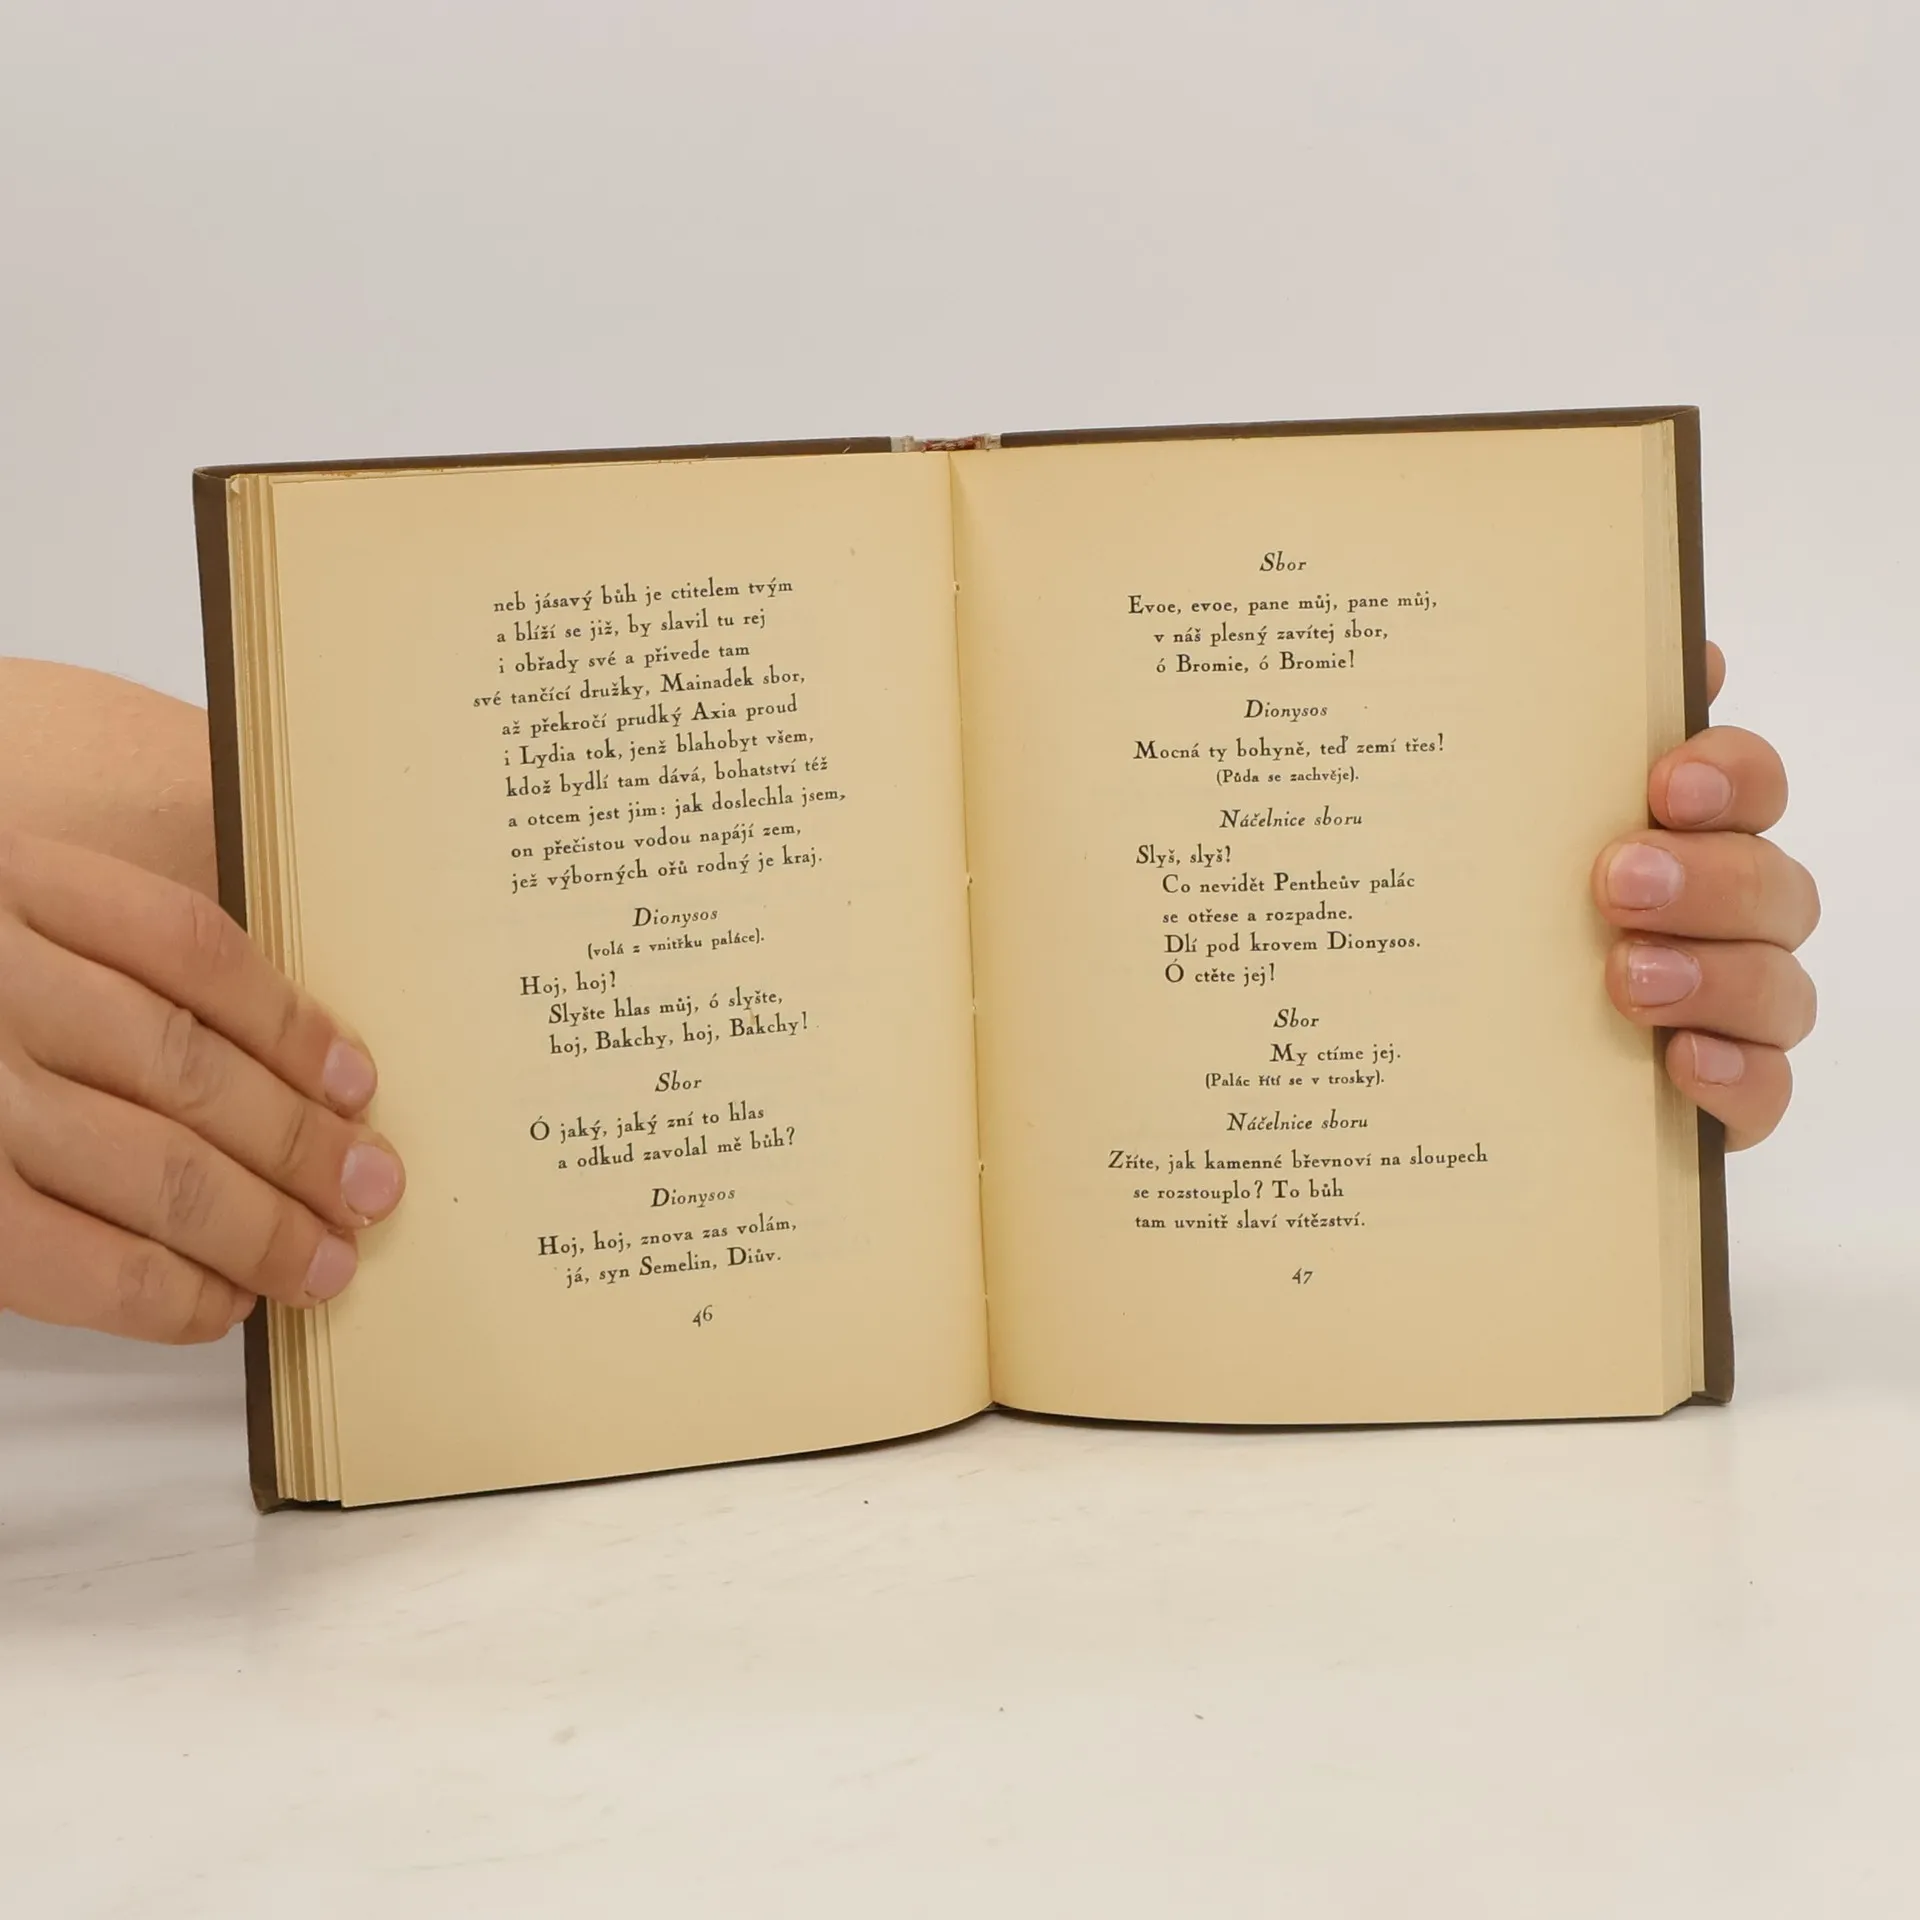 neb jásavý bůh je ctitelem tvým
a blíží se již, by slavil tu rej
i obřady své a přivede tam
své tančící družky, Mainadek sbor,
až překročí prudký Axia proud
i Lydia tok, jenž blahobyt všem,
kdož bydlí tam dává, bohatství též
a otcem jest jim: jak doslechla jsem,
on přečistou vodou napájí zem,
jež výborných ořů rodný je kraj.
Dionysos
(volá z vnitřku paláce).
Hoj, hoj!
Slyšte hlas můj, ó slyšte,
hoj, Bakchy, hoj, Bakchy!
Sbor
Ó jaký, jaký zní to hlas
a odkud zavolal mě bůh?
Dionysos
Hoj, hoj, znova zas volám,
já, syn Semelin, Diův.
46
Sbor
Evoe, evoe, pane můj, pane můj,
v náš plesný zavítej sbor,
ó Bromie, ó Bromie!
Dionysos
Mocná ty bohyně, teď zemí třes!
(Půda se zachvěje).
Náčelnice sboru
Slyš, slyš!
Co nevidět Pentheův palác
se otřese a rozpadne.
Dlí pod krovem Dionysos.
Ó ctěte jej!
Sbor
My ctíme jej.
(Palác řítí se v trosky).
Náčelnice sboru
Zříte, jak kamenné břevnoví na sloupech
se rozstouplo? To bůh
tam uvnitř slaví vítězství.
47